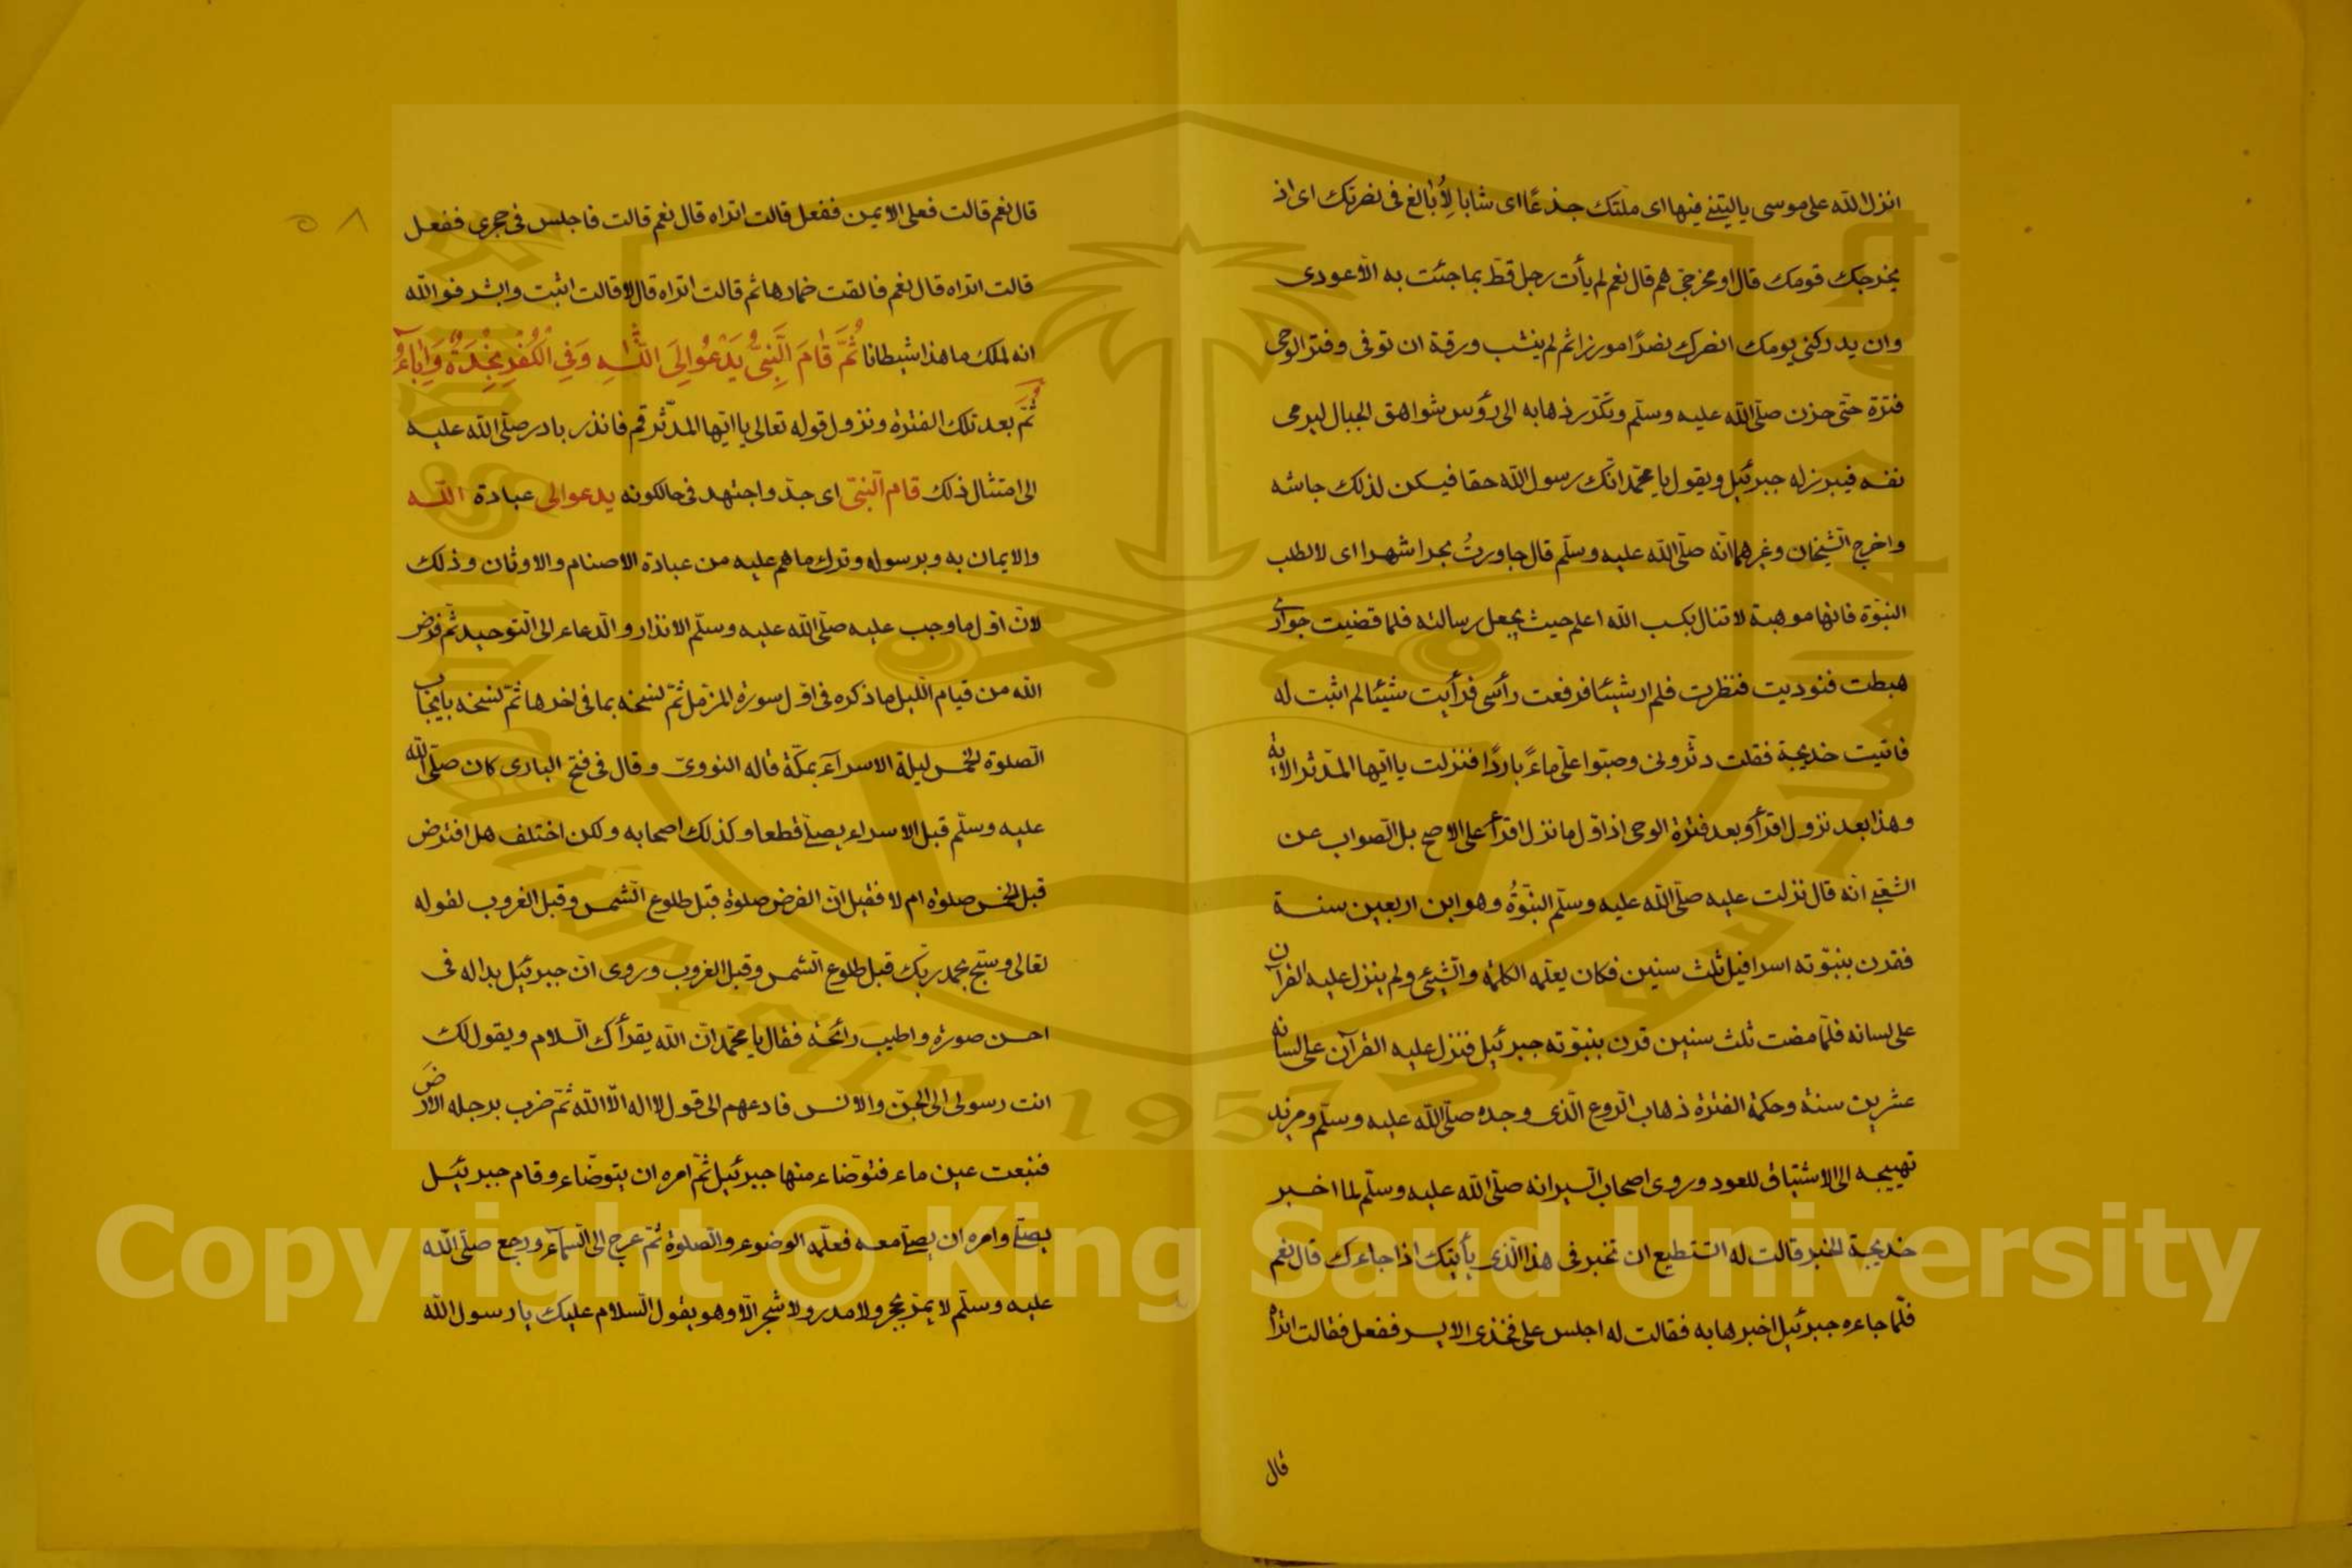 انزل الله على موسى ياليتني فيها اى ملتك جذعا اى شابا لأبالغ فى نصرتك اى اذ
يخرجك قومك قال او مخرجى هم قال نعم لم يأت رجل قط بما جئت به الا عودى
وان يدركنى يومك انصرك نصرا موزرا ثم لم ينشب ورقة ان توفى وفتر الوحى
فترة حتى حزن صلى الله عليه وسلم وتكرر ذهابه الى رؤس شواهق الجبال ليرمى
نفسه فيبرز له جبرئيل ويقول يا محمد انك رسول الله حقا فيسكن لذلك جاشه
واخرج الشيخان وغيرهما انه صلى الله عليه وسلم قال جاورت بحرا شهرا اى لا لطلب
النبوة فانها موهبة لا تنال بكسب الله اعلم حيث يجعل رسالته فلما قضيت جوارى
هبطت فنوديت فنظرت فلم ار شيئا فرفعت رأسى فرأيت شيئا لم اثبت له
فاتيت خديجة فقلت دثرونى وصبوا على ماء باردا فنزلت يا ايها المدثر الاية
وهذا بعد نزول اقرأ وبعد فترة الوحى اذ اول ما نزل اقرأ على الاصح بل الصواب عن
الشعبى انه قال نزلت عليه صلى الله عليه وسلم النبوة وهو ابن اربعين سنة
فقرن بنبوته اسرافيل ثلث سنين فكان يعلمه الكلمة والشيئ ولم ينزل عليه القرآن
على لسانه فلما مضت ثلث سنين قرن بنبوته جبرئيل فنزل عليه القرآن على لسانه
عشرين سنة وحكمة الفترة ذهاب الروع الذى وجده صلى الله عليه وسلم ومزيد
تهييجه الى الاشتياق للعود وروى اصحاب السير انه صلى الله عليه وسلم لما اخبر
خديجة الخبر قالت له اتستطيع ان تخبر فى هذا الذى يأتيك اذا جاءك قال نعم
فلما جاءه جبرئيل اخبرها به فقالت له اجلس على فخذى الايسر ففعل فقالت اتراه
قال
٥٨
قال نعم قالت فعلى الايمن ففعل قالت اتراه قال نعم قالت فاجلس فى حجرى ففعل
قالت اتراه قال نعم فالقت خمارها ثم قالت اتراه قال لا قالت اثبت وابشر فوالله
انه لملك ما هذا شيطانا ثُمَّ قَامَ النَّبِيُّ يَدْعُو إِلَى اللهِ وَفِي الْكُفْرِ نَجْدَةٌ وَإِبَاءُ
ثم بعد تلك الفترة ونزول قوله تعالى يا ايها المدثر قم فانذر بادر صلى الله عليه
الى امتثال ذلك قام النبى اى جد واجتهد فى حال كونه يدعو الى عبادة الله
والايمان به وبرسوله وترك ما هم عليه من عبادة الاصنام والاوثان وذلك
لان اول ما وجب عليه صلى الله عليه وسلم الانذار والدعاء الى التوحيد ثم فرض
الله من قيام الليل ما ذكره فى اول سورة المزمل ثم نسخه بما فى اخرها ثم نسخه بايجاب
الصلوة الخمس ليلة الاسراء بمكة قاله النووى وقال فى فتح البارى كان صلى الله
عليه وسلم قبل الاسراء يصلى قطعا وكذلك اصحابه ولكن اختلف هل افترض
قبل الخمس صلوة ام لا فقيل ان الفرض صلوة قبل طلوع الشمس وقبل الغروب لقوله
تعالى وسبح بحمد ربك قبل طلوع الشمس وقبل الغروب وروى ان جبرئيل بدا له فى
احسن صورة واطيب رائحة فقال يا محمد ان الله يقرأك السلام ويقول لك
انت رسولى الى الجن والانس فادعهم الى قول لا اله الا الله ثم ضرب برجله الارض
فنبعت عين ماء فتوضاء منها جبرئيل ثم امره ان يتوضاء وقام جبرئيل
يصلى وامره ان يصلى معه فعلمه الوضوء والصلوة ثم عرج الى السماء ورجع صلى الله
عليه وسلم لا يمر بحجر ولا مدر ولا شجر الا وهو يقول السلام عليك يا رسول الله
Copyright © King Saud University
1957